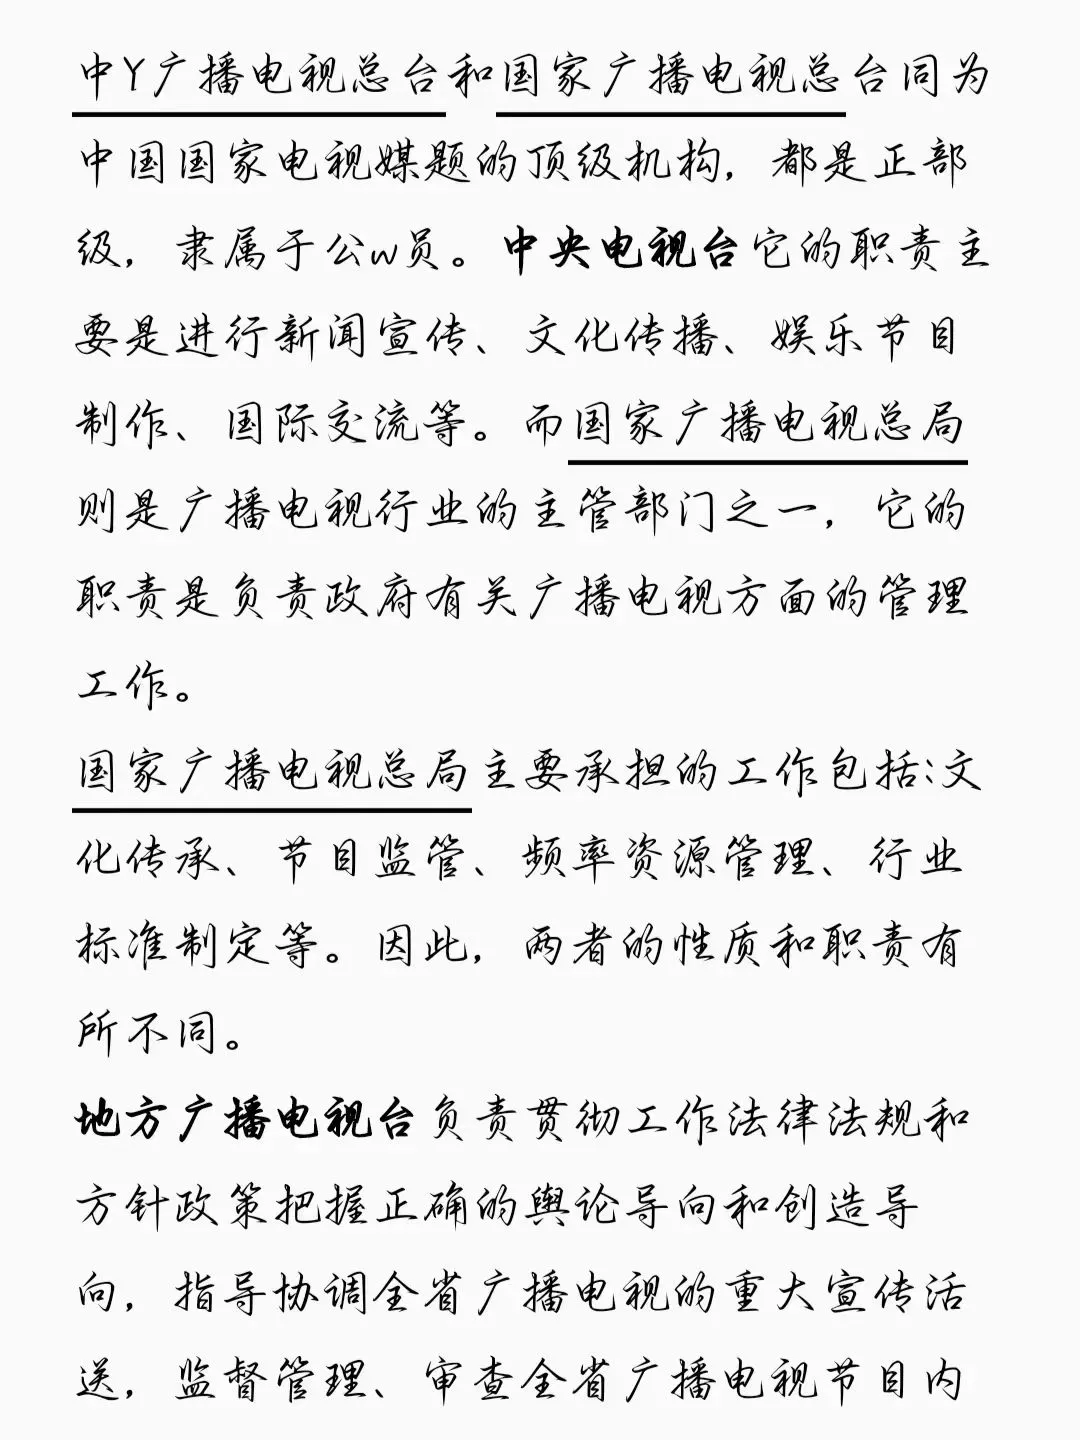 中Y广播电视总台和国家广播电视总台同为
中国国家电视媒题的顶级机构，都是正部
级，隶属于公w员。中央电视台它的职责主
要是进行新闻宣传、文化传播、娱乐节目
制作、国际交流等。而国家广播电视总局
则是广播电视行业的主管部门之一，它的
职责是负责政府有关广播电视方面的管理
工作。
国家广播电视总局主要承担的工作包括:文
化传承、节目监管、频率资源管理、行业
标准制定等。因此，两者的性质和职责有
所不同。
地方广播电视台负责贯彻工作法律法规和
方针政策把握正确的舆论导向和创造导
向，指导协调全省广播电视的重大宣传活
送，监督管理、审查全省广播电视节目内